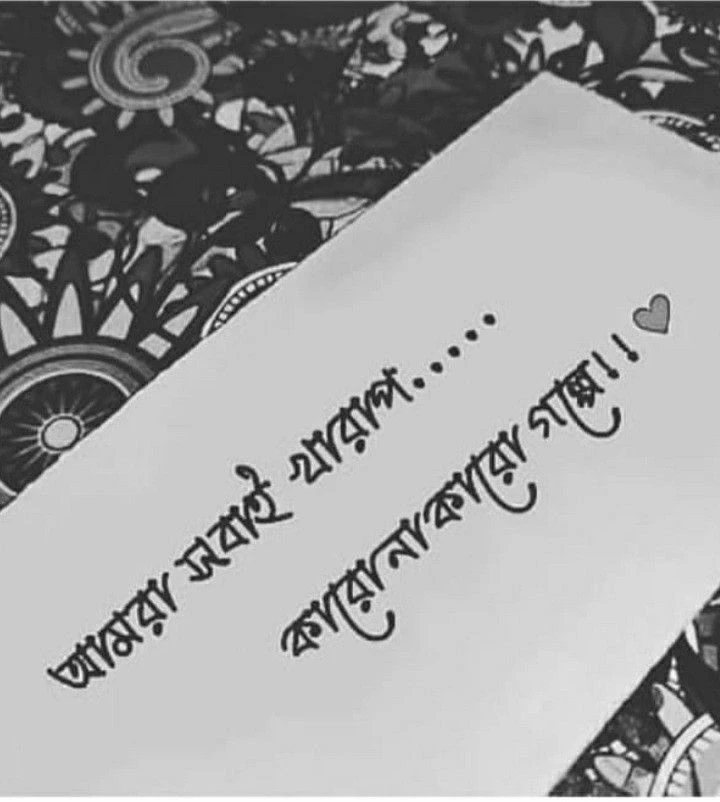 আমরা সবাই খারাপ.....
কারো না কারো গল্পে!! ♥